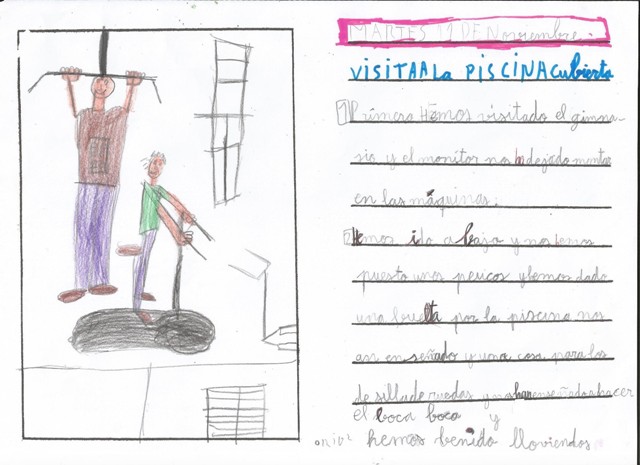 MARTES 11 DE Noviembre.
VISITA A La PISCINA CUbierta
1 Primero Hemos visitado el gimna-
sio y el monitor nos ha dejado montar
en las máquinas.
2 Hemos ido a bajo y nos hemos
puesto unos peucos y hemos dado
una buelta por la piscina nos
an enseñado y una cosa para los
de silla de ruedas y nos han enseñado a hacer
el boca boca y
hemos benido lloviendo